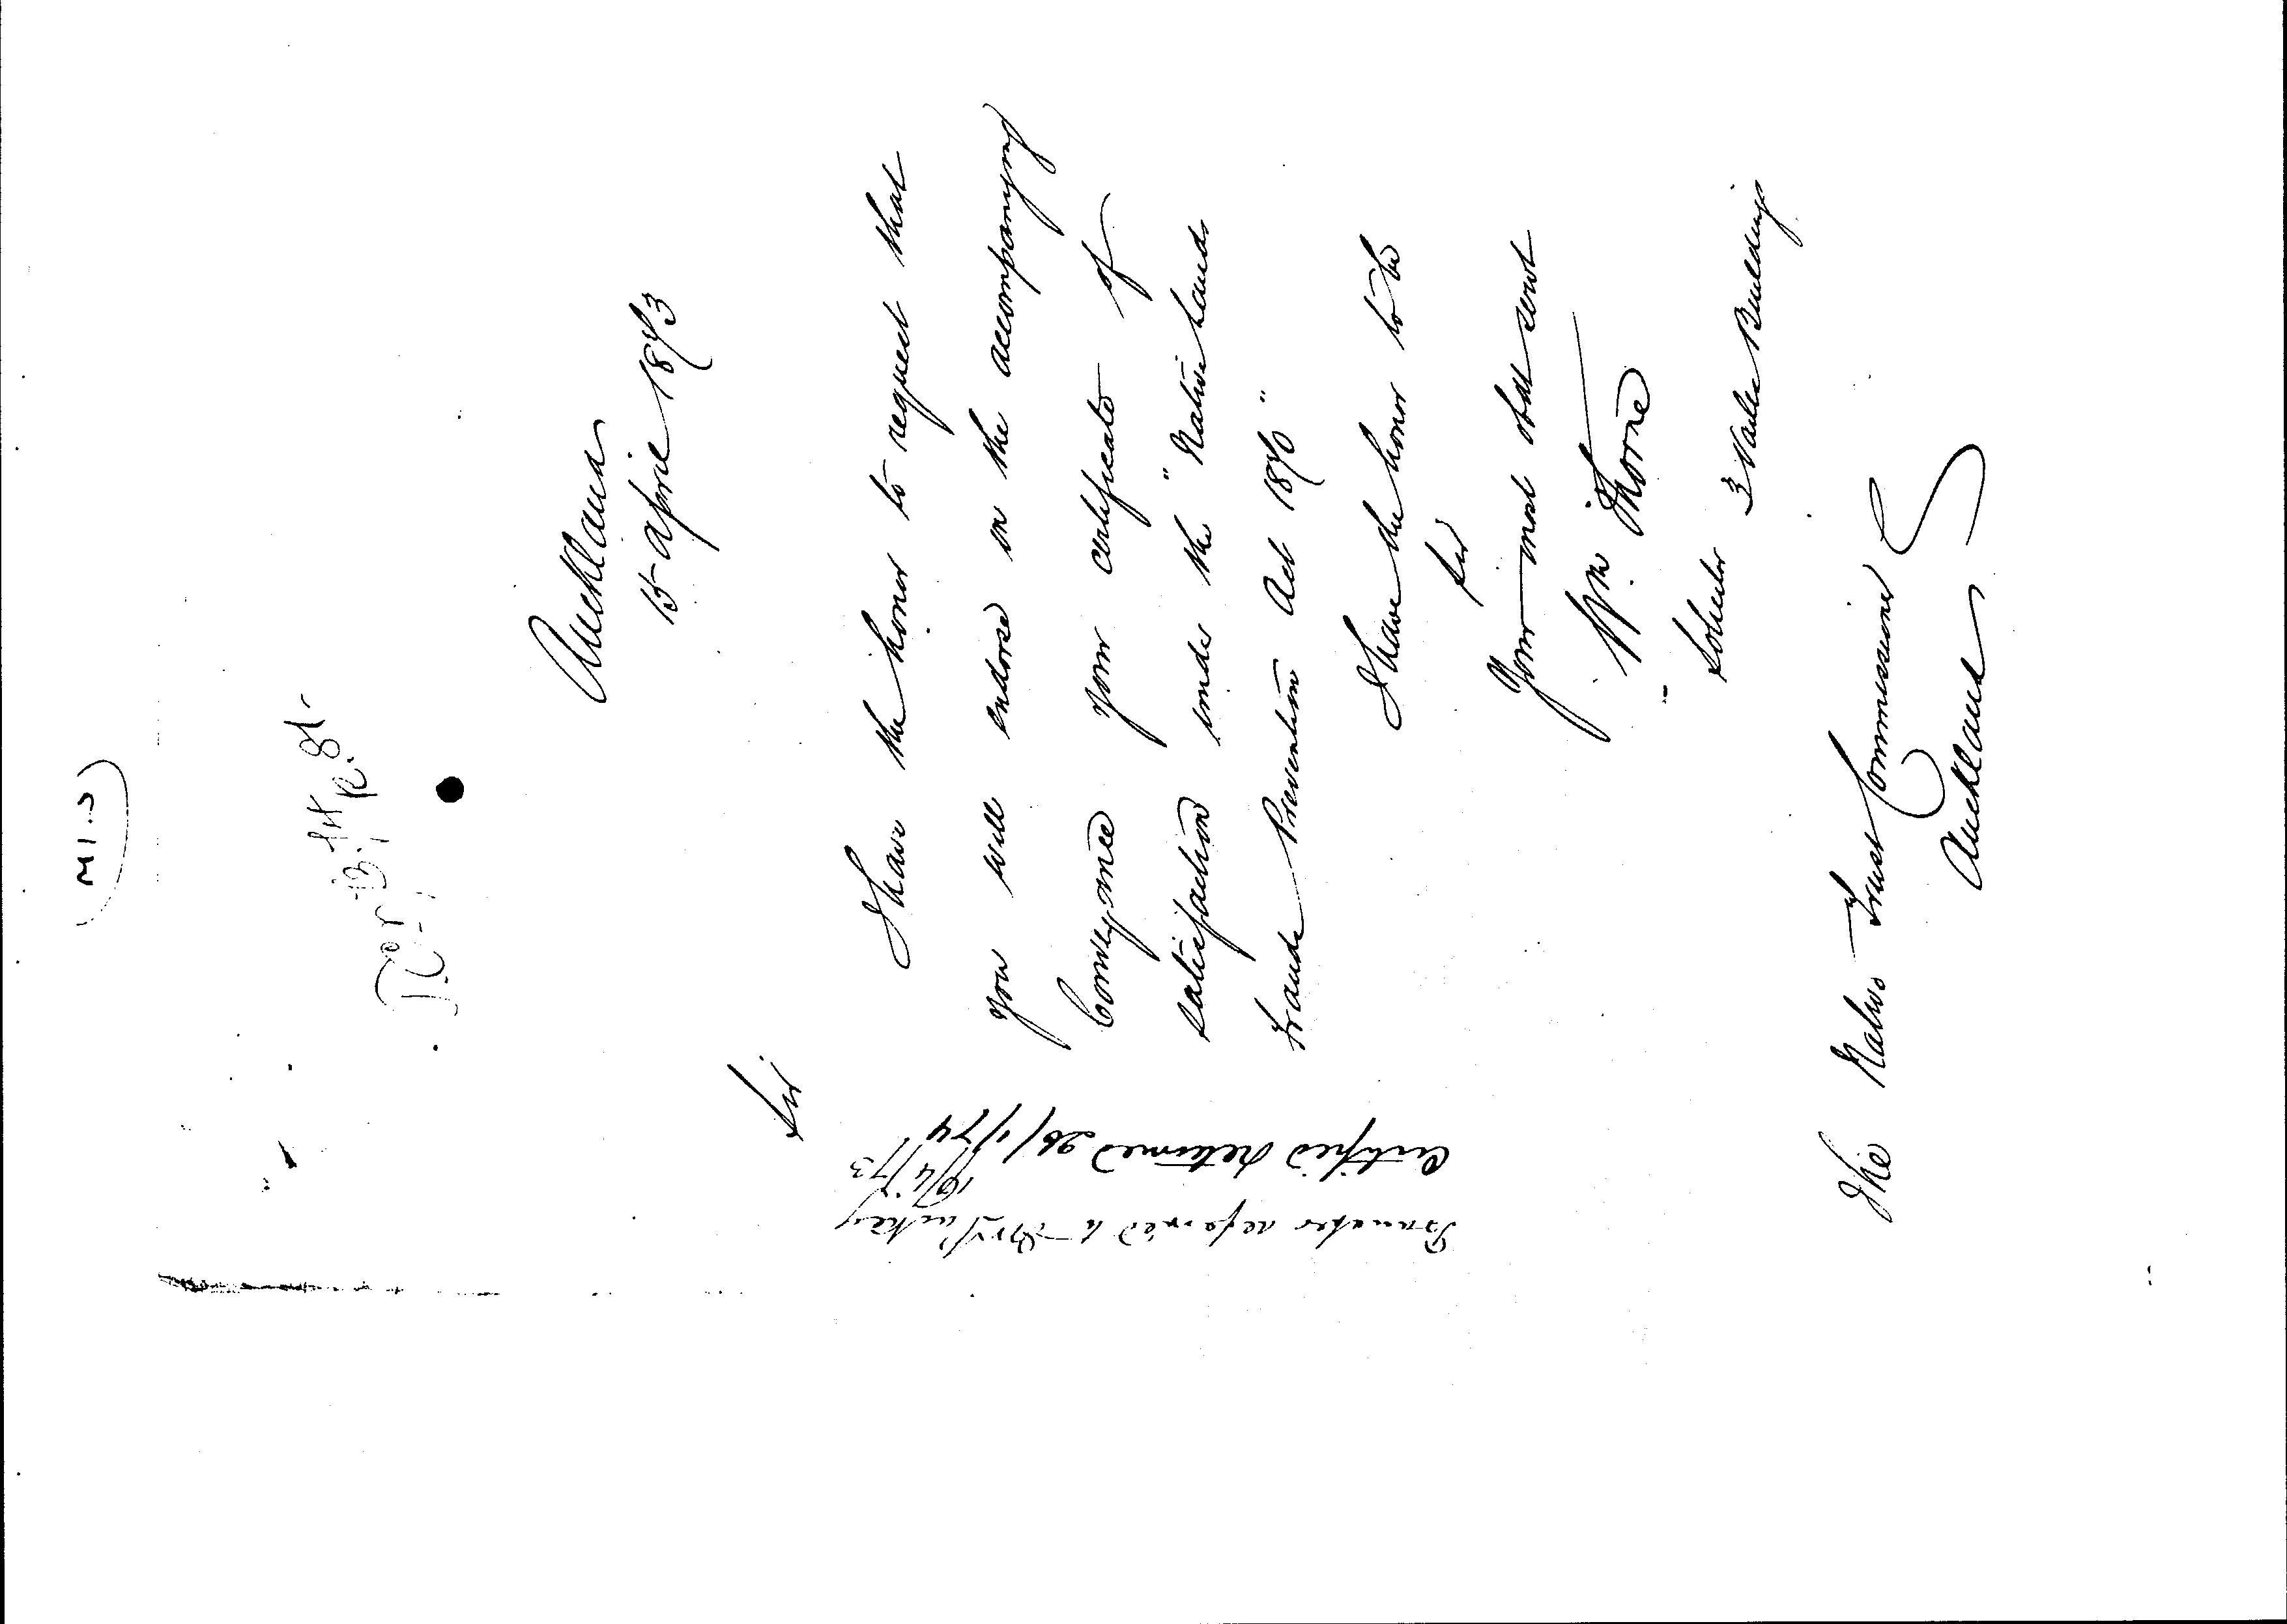 Auckland
15 April 1873
Sir
I have the honor to request that
you will endorse on the accompanying
Conveyance your certificate of
satisfaction under the "Native Lands
Frauds Prevention Act 1870"
I have the honor to be
Sir
Your most obdt servt
Wm Thorne
Solicitor 3 Buildings
The Native Trust Commissioner
Auckland
referred to
16/4/73
Certified Returned 26/1/74